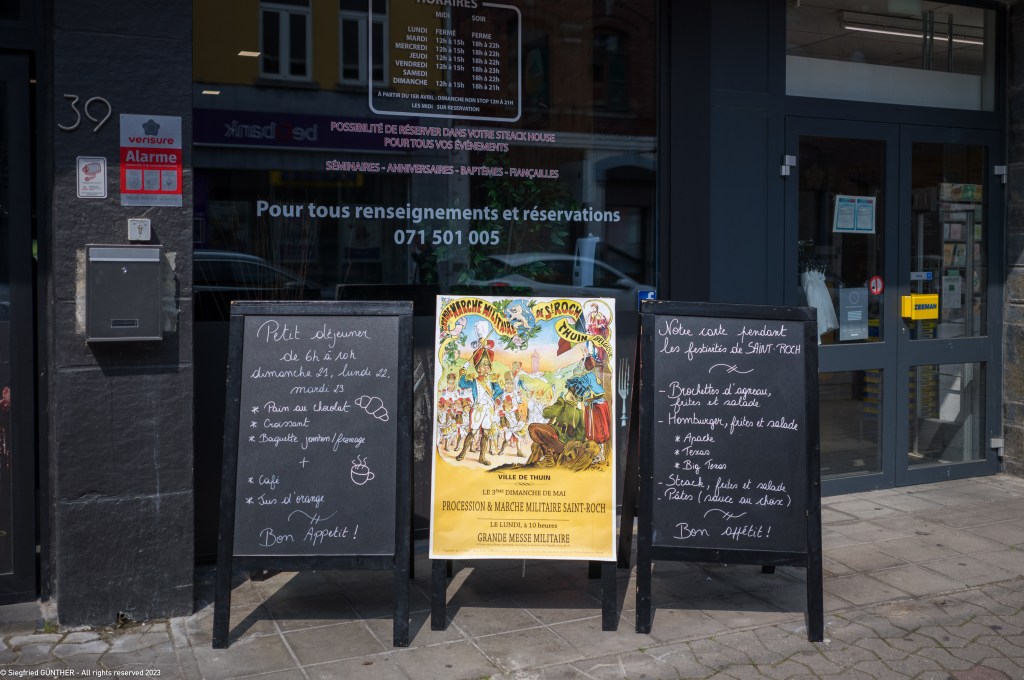 HORAIRES
MIDI SOIR
LUNDI FERMÉ FERME
MARDI 12h à 15h 18h à 22h
MERCREDI 12h à 15h 18h à 22h
JEUDI 12h à 15h 18h à 22h
VENDREDI 12h à 15h 18h à 22h
SAMEDI 18h à 22h
DIMANCHE 12h à 15h 18h à 21h
À PARTIR DU 1ER AVRIL : DIMANCHE NON STOP 12H À 21H
LES MIDI SUR RESERVATION
POSSIBILITÉ DE RÉSERVER DANS VOTRE STEACK HOUSE
POUR TOUS VOS ÉVÉNEMENTS
SÉMINAIRES - ANNIVERSAIRES - BAPTÊMES - FIANÇAILLES
Pour tous renseignements et réservations
071 501 005
39
verisure
Alarme
ZEEMAN
Petit déjeuner
de 6h à 10h
dimanche 21, lundi 22,
mardi 23
* Pain au chocolat
* Croissant
* Baguette jambon/fromage
+
* Café
* Jus d'orange
Bon Appetit !
MARCHE MILITAIRE
DE St ROCH
THUIN
VILLE DE THUIN
LE 3ème DIMANCHE DE MAI
PROCESSION & MARCHE MILITAIRE SAINT-ROCH
LE LUNDI, à 10 heures
GRANDE MESSE MILITAIRE
Notre carte pendant
les festivités de SAINT-ROCH
- Brochettes d'agneau,
frites et salade
- Hamburger, frites et salade
* Apache
* Texas
* Big Texas
- Steack, frites et salade
- Pâtes (sauce au choix)
Bon appétit !
© Siegfried GÜNTHER - All rights reserved 2023